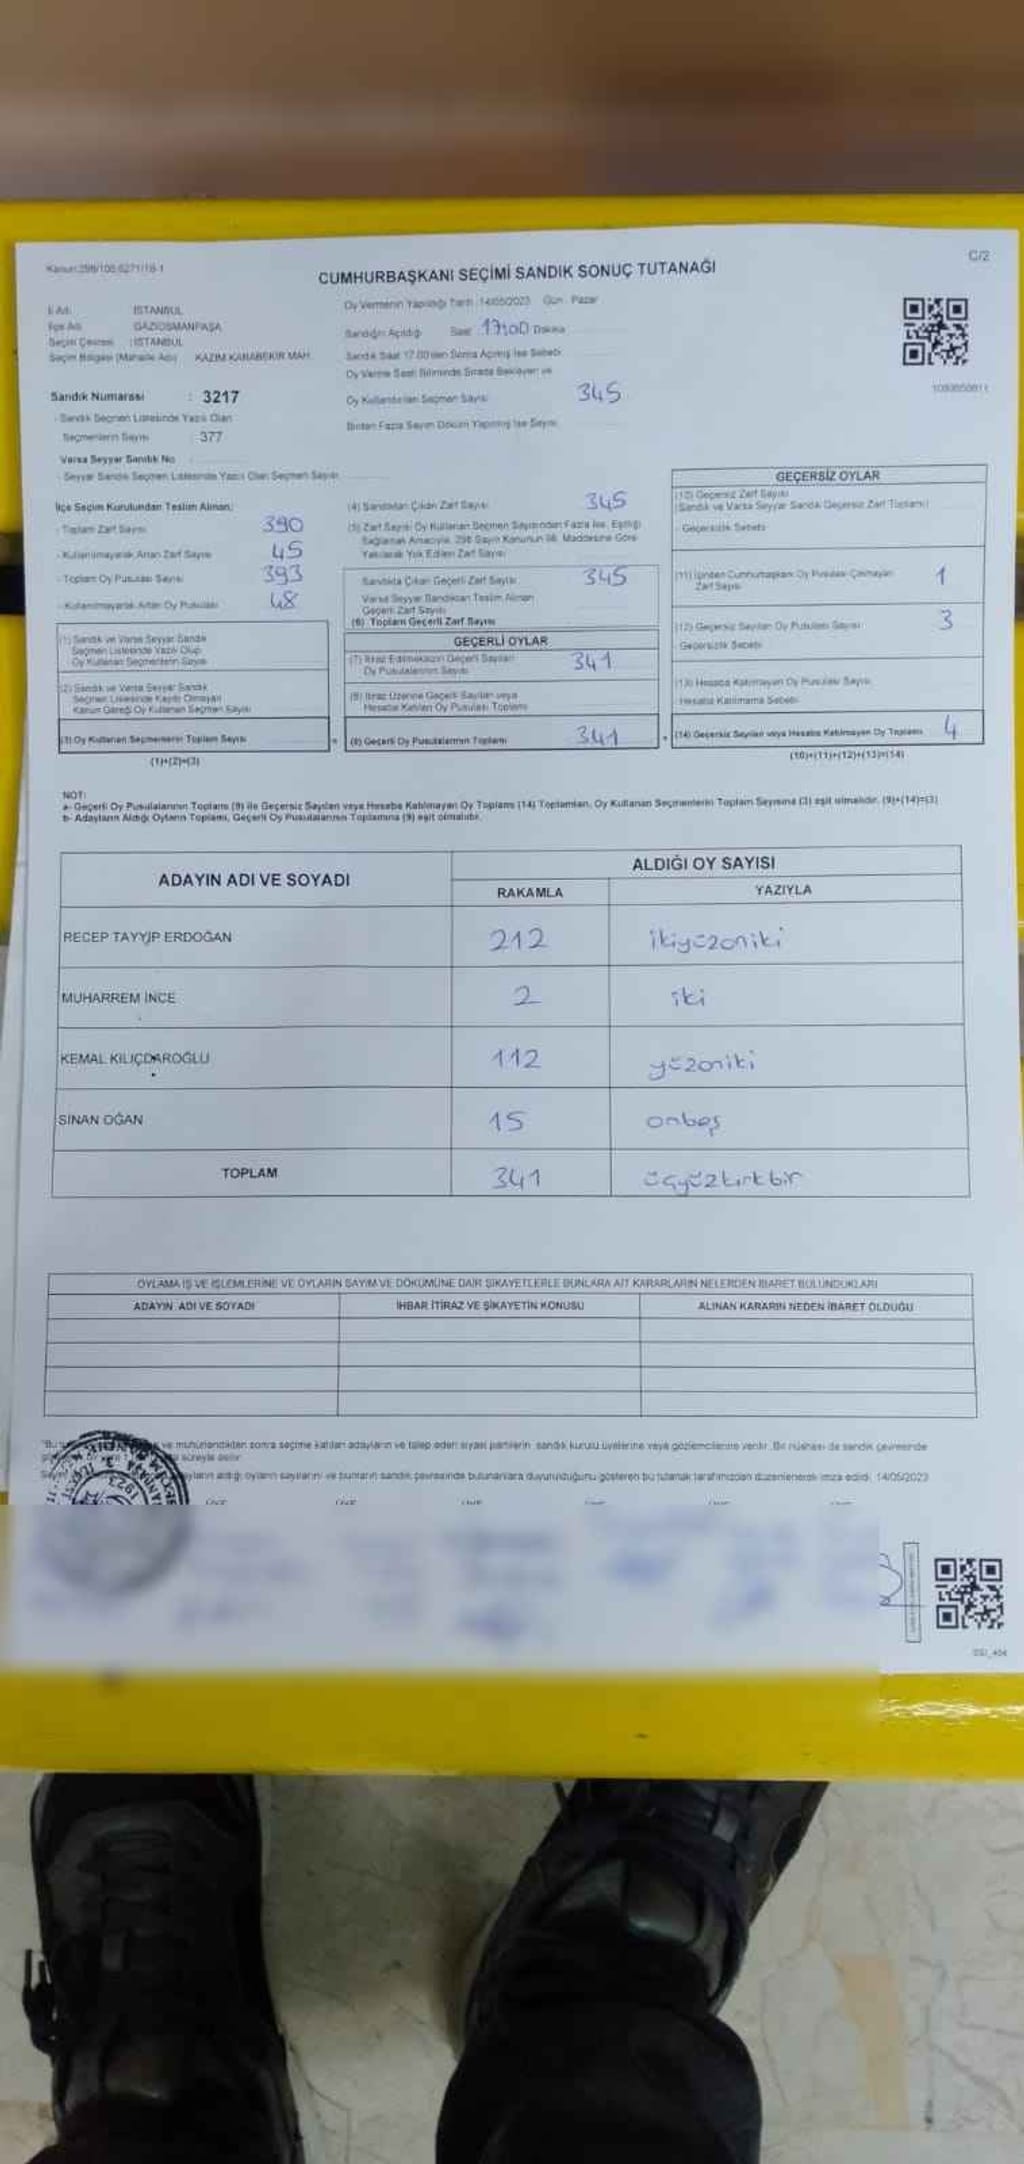 Kanun:298/105;6271/18-1
C/2
CUMHURBAŞKANI SEÇİMİ SANDIK SONUÇ TUTANAĞI
İl Adı : İSTANBUL
İlçe Adı : GAZİOSMANPAŞA
Seçim Çevresi : İSTANBUL
Seçim Bölgesi (Mahalle Adı) : KAZIM KARABEKİR MAH.
Sandık Numarası : 3217
- Sandık Seçmen Listesinde Yazılı Olan
Seçmenlerin Sayısı : 377
Varsa Seyyar Sandık No
- Seyyar Sandık Seçmen Listesinde Yazılı Olan Seçmen Sayısı
Oy Vermenin Yapıldığı Tarih : 14/05/2023 Gün : Pazar
Sandığın Açıldığı Saat 17:00 Dakika
Sandık Saat 17.00'den Sonra Açılmış İse Sebebi
Oy Verme Saati Bitiminde Sırada Bekleyen ve
Oy Kullandırılan Seçmen Sayısı 345
Birden Fazla Sayım Döküm Yapılmış İse Sayısı
İlçe Seçim Kurulundan Teslim Alınan;
- Toplam Zarf Sayısı 390
- Kullanılmayarak Artan Zarf Sayısı 45
- Toplam Oy Pusulası Sayısı 393
- Kullanılmayarak Artan Oy Pusulası 48
(1) Sandık ve Varsa Seyyar Sandık
Seçmen Listesinde Yazılı Olup
Oy Kullanan Seçmenlerin Sayısı
(2) Sandık ve Varsa Seyyar Sandık
Seçmen Listesinde Kaydı Olmayan
Kanun Gereği Oy Kullanan Seçmen Sayısı
(3) Oy Kullanan Seçmenlerin Toplam Sayısı
(1)+(2)=(3)
(4) Sandıktan Çıkan Zarf Sayısı 345
(5) Zarf Sayısı Oy Kullanan Seçmen Sayısından Fazla İse, Eşitliği
Sağlamak Amacıyla, 298 Sayılı Kanunun 98. Maddesine Göre
Yakılarak Yok Edilen Zarf Sayısı
Sandıkta Çıkan Geçerli Zarf Sayısı 345
Varsa Seyyar Sandıktan Teslim Alınan
Geçerli Zarf Sayısı
(6) Toplam Geçerli Zarf Sayısı
GEÇERLİ OYLAR
(7) İtiraz Edilmeksizin Geçerli Sayılan
Oy Pusulalarının Sayısı 341
(8) İtiraz Üzerine Geçerli Sayılan veya
Hesaba Katılan Oy Pusulası Toplamı
(9) Geçerli Oy Pusulalarının Toplamı 341
GEÇERSİZ OYLAR
(10) Geçersiz Zarf Sayısı
(Sandık ve Varsa Seyyar Sandık Geçersiz Zarf Toplamı)
Geçersizlik Sebebi
(11) İçinden Cumhurbaşkanı Oy Pusulası Çıkmayan
Zarf Sayısı 1
(12) Geçersiz Sayılan Oy Pusulası Sayısı 3
Geçersizlik Sebebi
(13) Hesaba Katılmayan Oy Pusulası Sayısı
Hesaba Katılmama Sebebi
(14) Geçersiz Sayılan veya Hesaba Katılmayan Oy Toplamı 4
(10)+(11)+(12)+(13)=(14)
NOT:
a- Geçerli Oy Pusulalarının Toplamı (9) ile Geçersiz Sayılan veya Hesaba Katılmayan Oy Toplamı (14) Toplamları, Oy Kullanan Seçmenlerin Toplam Sayısına (3) eşit olmalıdır. (9)+(14)=(3)
b- Adayların Aldığı Oyların Toplamı, Geçerli Oy Pusulalarının Toplamına (9) eşit olmalıdır.
ADAYIN ADI VE SOYADI ALDIĞI OY SAYISI
RAKAMLA YAZIYLA
RECEP TAYYİP ERDOĞAN 212 ikiyüzoniki
MUHARREM İNCE 2 iki
KEMAL KILIÇDAROĞLU 112 yüzoniki
SİNAN OĞAN 15 onbeş
TOPLAM 341 üçyüzkırkbir
OYLAMA İŞ VE İŞLEMLERİNE VE OYLARIN SAYIM VE DÖKÜMÜNE DAİR ŞİKAYETLERLE BUNLARA AİT KARARLARIN NELERDEN İBARET BULUNDUKLARI
ADAYIN ADI VE SOYADI İHBAR İTİRAZ VE ŞİKAYETİN KONUSU ALINAN KARARIN NEDEN İBARET OLDUĞU
ve mühürlendikten sonra seçime katılan adayların ve talep eden siyasi partilerin sandık kurulu üyelerine veya gözlemcilerine verilir. Bir nüshası da sandık çevresinde
süreyle asılır.
aldığı oyların sayılarını ve bunların sandık çevresinde bulunanlara duyurulduğunu gösteren bu tutanak tarafımızdan düzenlenerek imza edildi. 14/05/2023
1923